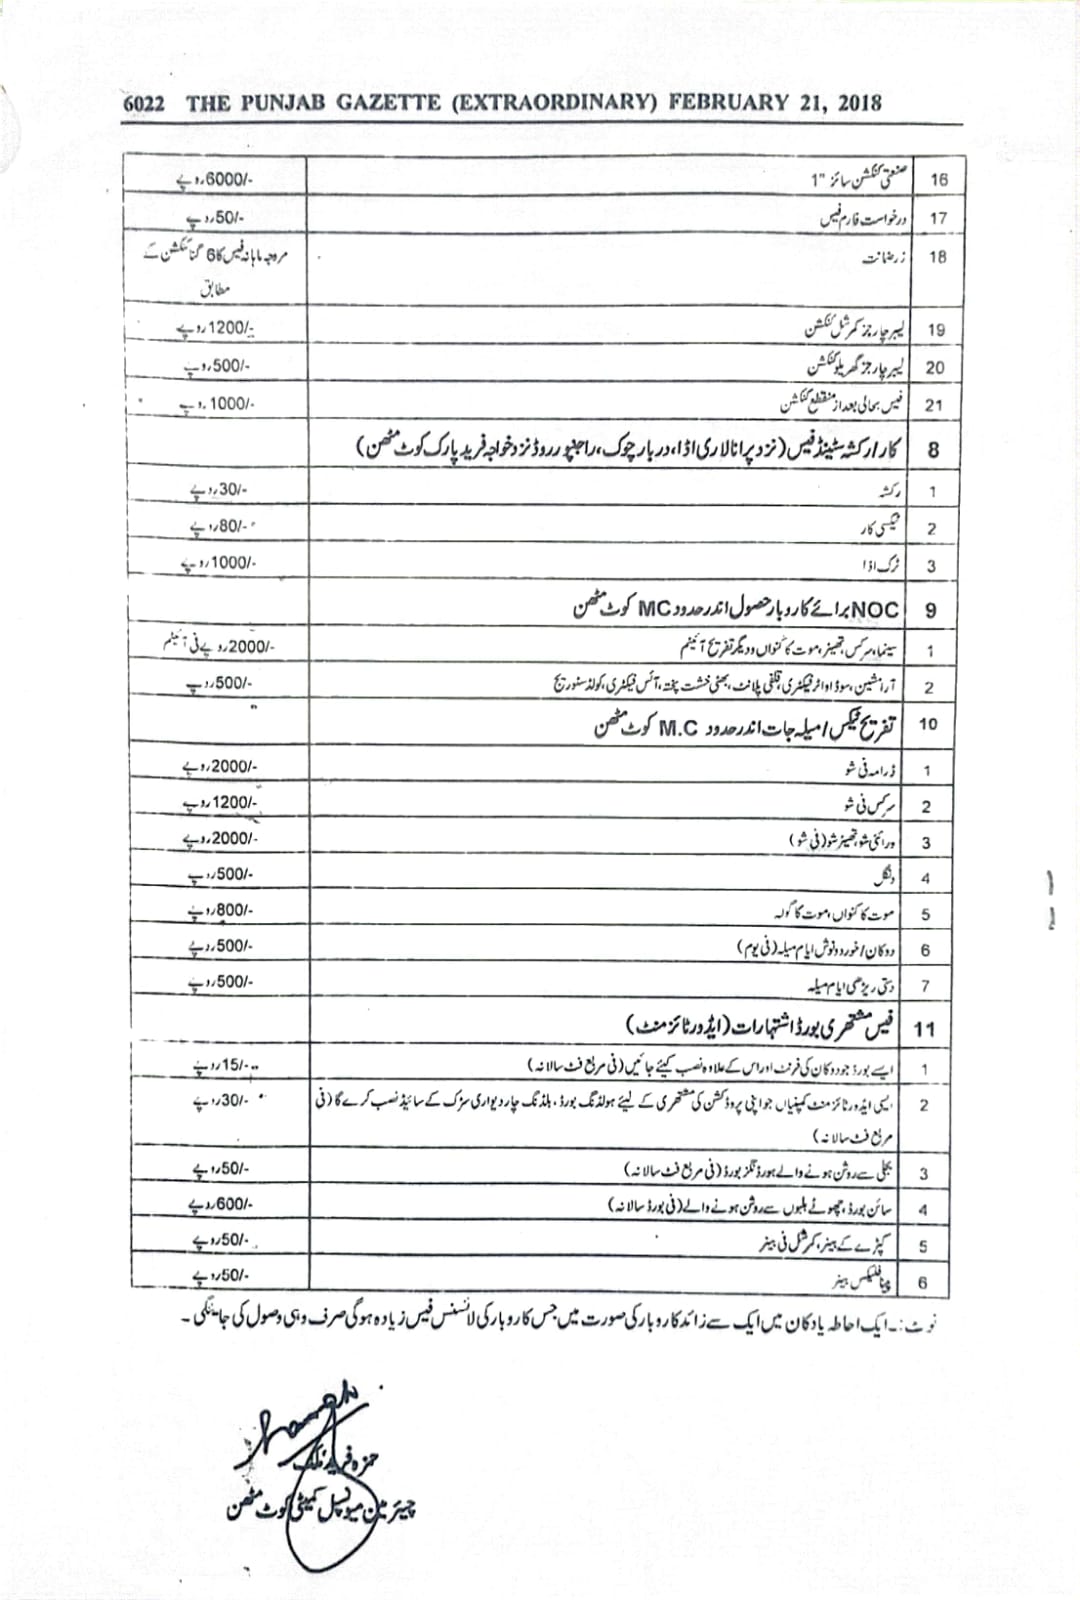 6022 THE PUNJAB GAZETTE (EXTRAORDINARY) FEBRUARY 21, 2018
16 صنعتی کنکشن سائز "1 6000/-روپے
17 درخواست فارم فیس 50/-روپے
18 زرضمانت مروجہ ماہانہ فیس کا 6 گنا کنکشن کے
مطابق
19 لیبر چارجز کمرشل کنکشن 1200/-روپے
20 لیبر چارجز گھریلو کنکشن 500/-روپے
21 فیس بحالی بعد از منقطع کنکشن 1000/-روپے
8 کار/رکشہ سٹینڈ فیس (نزد پرانا لاری اڈا، دربار چوک، راجنپور روڈ نزد خواجہ فرید پارک کوٹ مٹھن)
1 رکشہ 30/-روپے
2 ٹیکسی کار 80/-روپے
3 ٹرک اڈا 1000/-روپے
9 NOC برائے کاروبار حصول اندر حدود MC کوٹ مٹھن
1 سینما، سرکس، تھیٹر، موت کا کنواں و دیگر تفریح آئیٹم 2000/-روپے فی آئیٹم
2 آرا مشین، سوڈا واٹر فیکٹری، قلفی پلانٹ، بھٹی خشت پختہ، آئس فیکٹری، کولڈ سٹوریج 500/-روپے
10 تفریح ٹیکس / میلہ جات اندر حدود M.C کوٹ مٹھن
1 ڈرامہ فی شو 2000/-روپے
2 سرکس فی شو 1200/-روپے
3 ورائٹی شو، تھیٹر شو (فی شو) 2000/-روپے
4 دنگل 500/-روپے
5 موت کا کنواں، موت کا گولہ 800/-روپے
6 دوکان / خورد و نوش ایام میلہ (فی یوم) 500/-روپے
7 دستی ریڑھی ایام میلہ 500/-روپے
11 فیس مشتھری بورڈ اشتہارات (ایڈورٹائزمنٹ)
1 ایسے بورڈ جو دوکان کی فرنٹ اور اس کے علاوہ نصب کیئے جائیں (فی مربع فٹ سالانہ) 15/-روپے
2 ایسی ایڈورٹائزمنٹ کمپنیاں جو اپنی پروڈکشن کی مشتھری کے لیئے ہولڈنگ بورڈ، بلڈنگ چار دیواری سڑک کے سائیڈ نصب کرے گا (فی 30/-روپے
مربع فٹ سالانہ)
3 بجلی سے روشن ہونے والے ہورڈنگز بورڈ (فی مربع فٹ سالانہ) 50/-روپے
4 سائن بورڈ، چھوٹے بلبوں سے روشن ہونے والے (فی بورڈ سالانہ) 600/-روپے
5 کپڑے کے بینر، کمرشل فی بینر 50/-روپے
6 پینا فلیکس بینر 50/-روپے
نوٹ:۔ ایک احاطہ یا دکان میں ایک سے زائد کاروبار کی صورت میں جس کاروبار کی لائسنس فیس زیادہ ہوگی صرف وہی وصول کی جائیگی۔
حمزہ فرید ملک
چیئرمین میونسپل کمیٹی کوٹ مٹھن